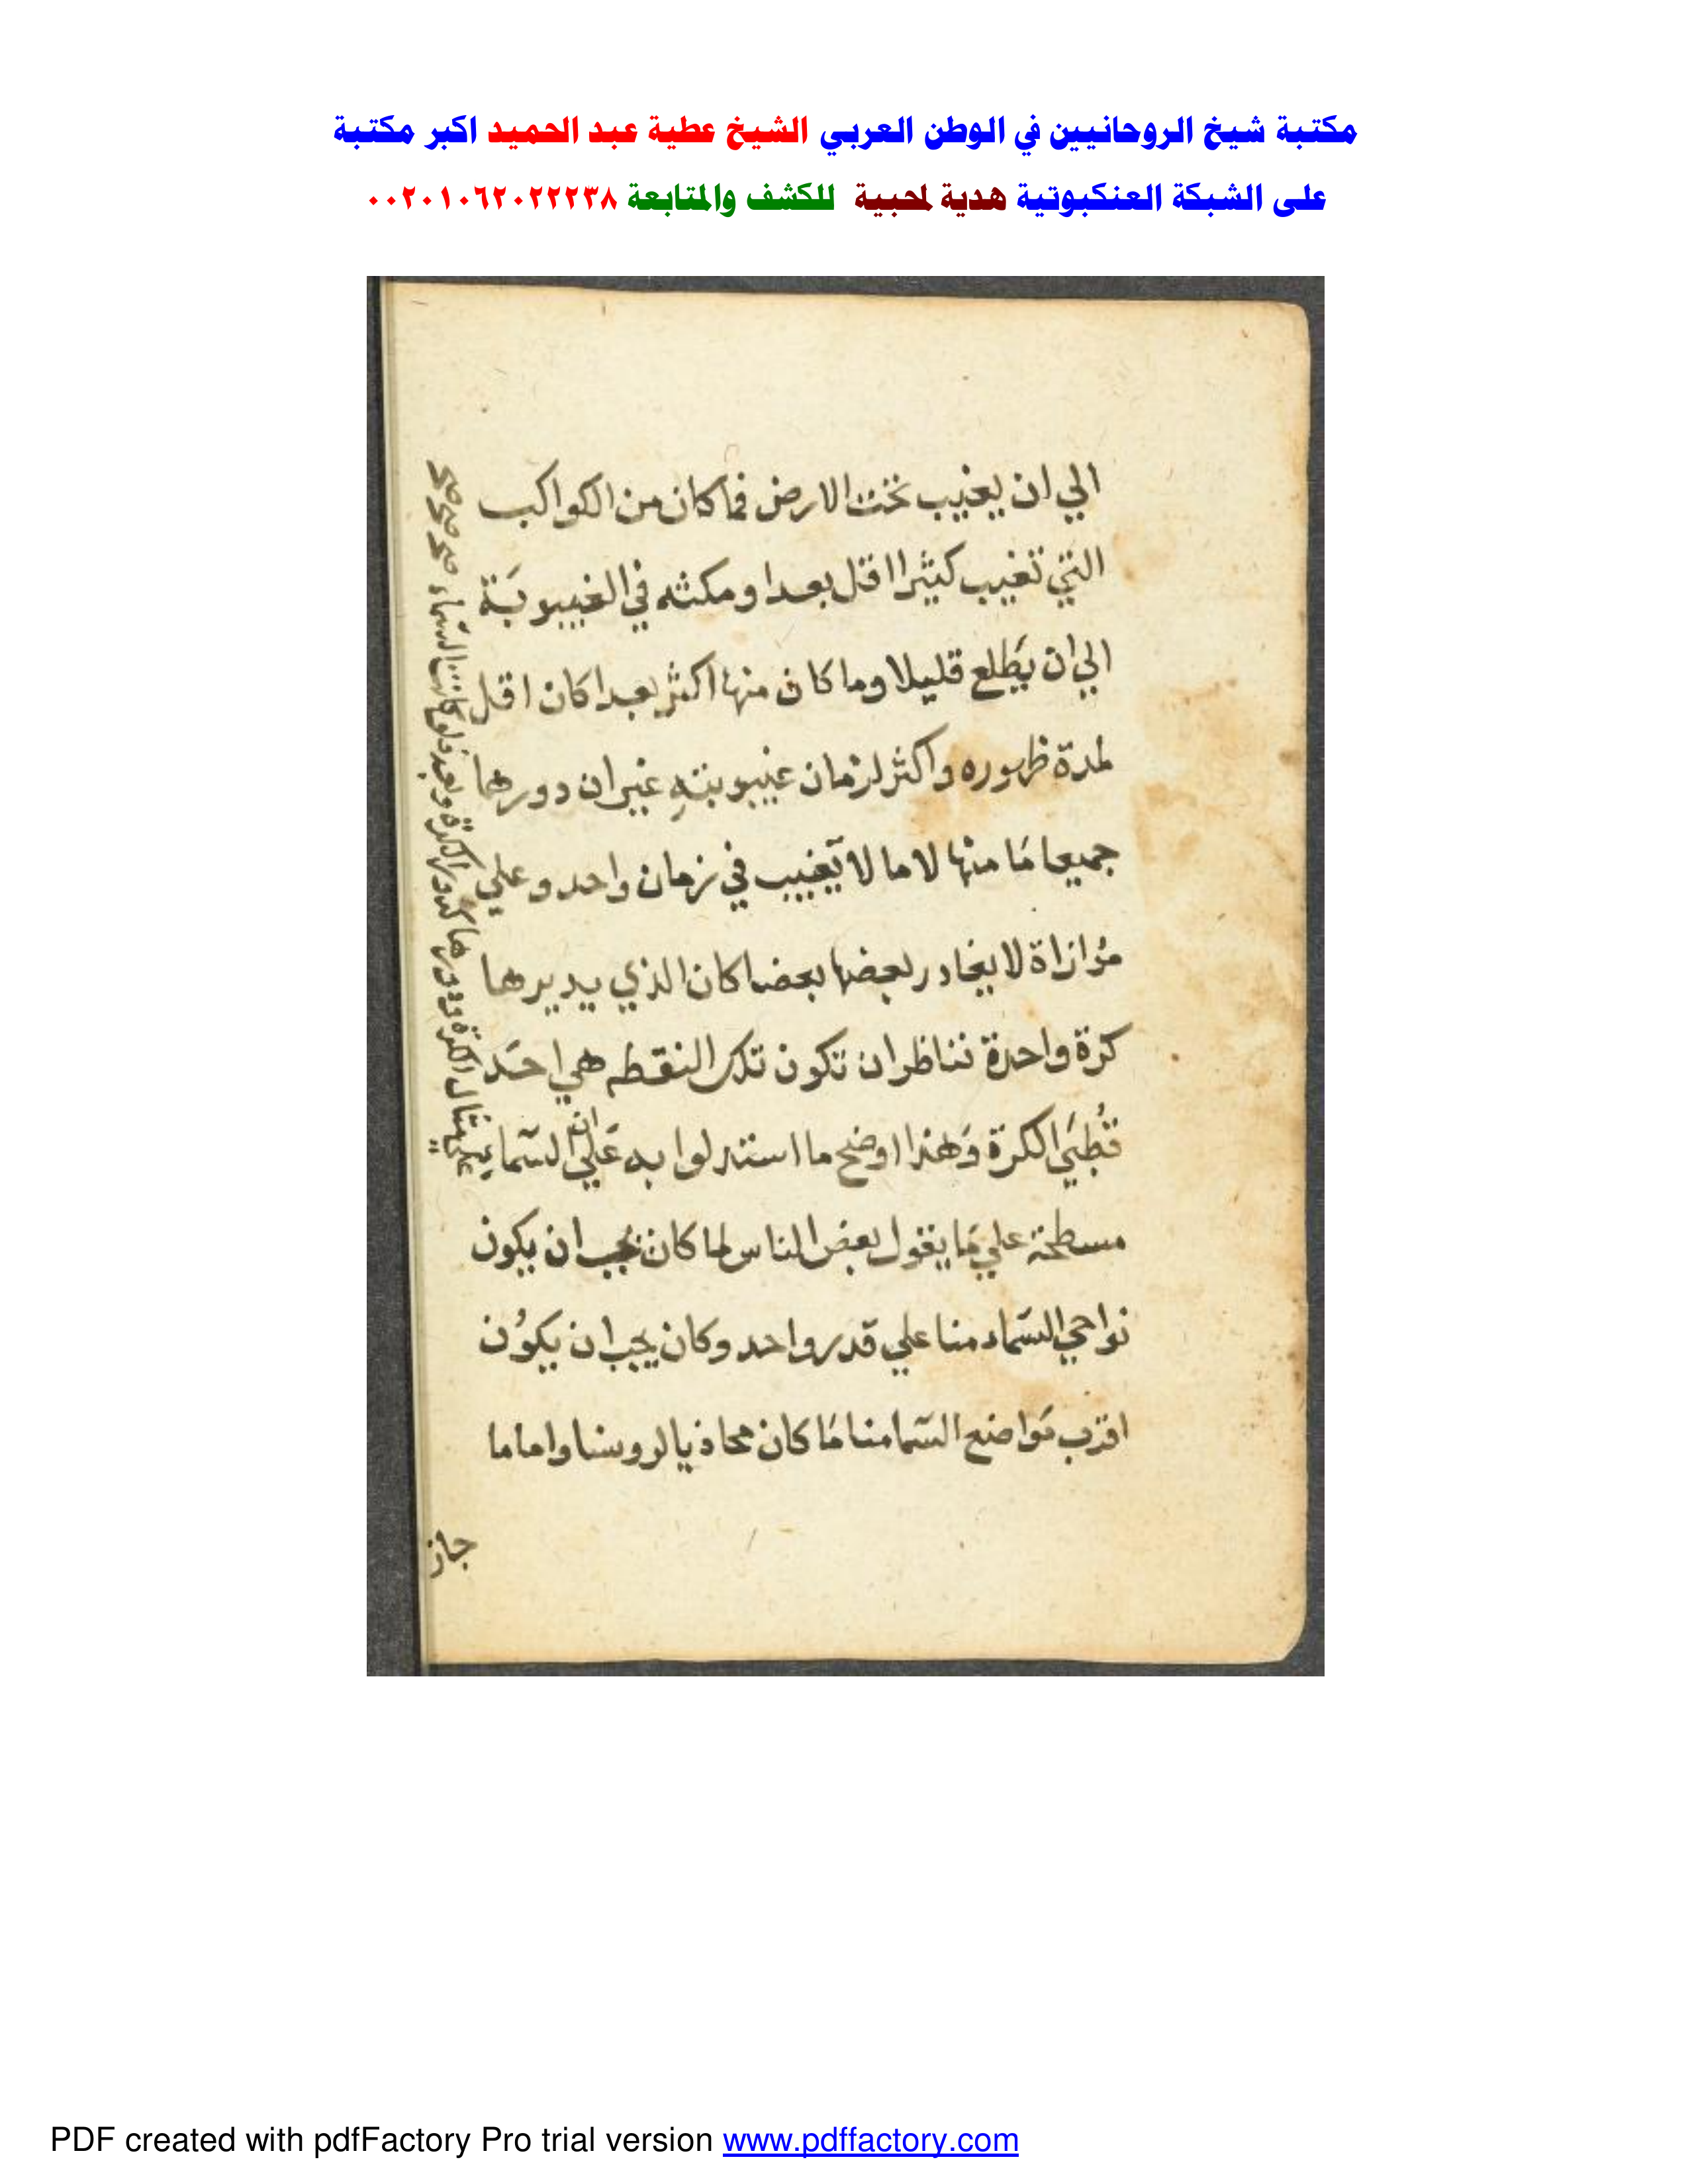 مكتبة شيخ الروحانيين في الوطن العربي الشيخ عطية عبد الحميد اكبر مكتبة
على الشبكة العنكبوتية هدية لمحبية للكشف والمتابعة ٠٠٢٠١٠٦٢٠٢٢٢٣٨
الي ان يغيب تحت الارض فما كان من الكواكب
التي تغيب كثيرا اقل بعدا ومكثه في الغيبوبة
الي ان يطلع قليلا وما كان منها اكثر بعدا كان اقل
لمدة ظهوره واكثر لزمان غيبوبته غير ان دورها
جميعا ما منها لاما لا يغيب في زمان واحد وعلي
مؤازاة لا يغادر بعضها بعضا كان الذي يديرها
كرة واحدة نناظر ان تكون تلك النقطه هي احد
قطبي الكرة وهذا اوضح ما استدلوا به علي ان السما
مسطحة علي ما يقول بعض الناس لما كان يجب ان يكون
نواحي السماء منا علي قدر واحد وكان يجب ان يكون
اقرب مواضع السما منا ما كان محاذيا لروسنا واما ما
علي مثال الكرة ودورها كدور الكرة وبعد فلو كانت السماء صح صح صح
جاز
PDF created with pdfFactory Pro trial version www.pdffactory.com